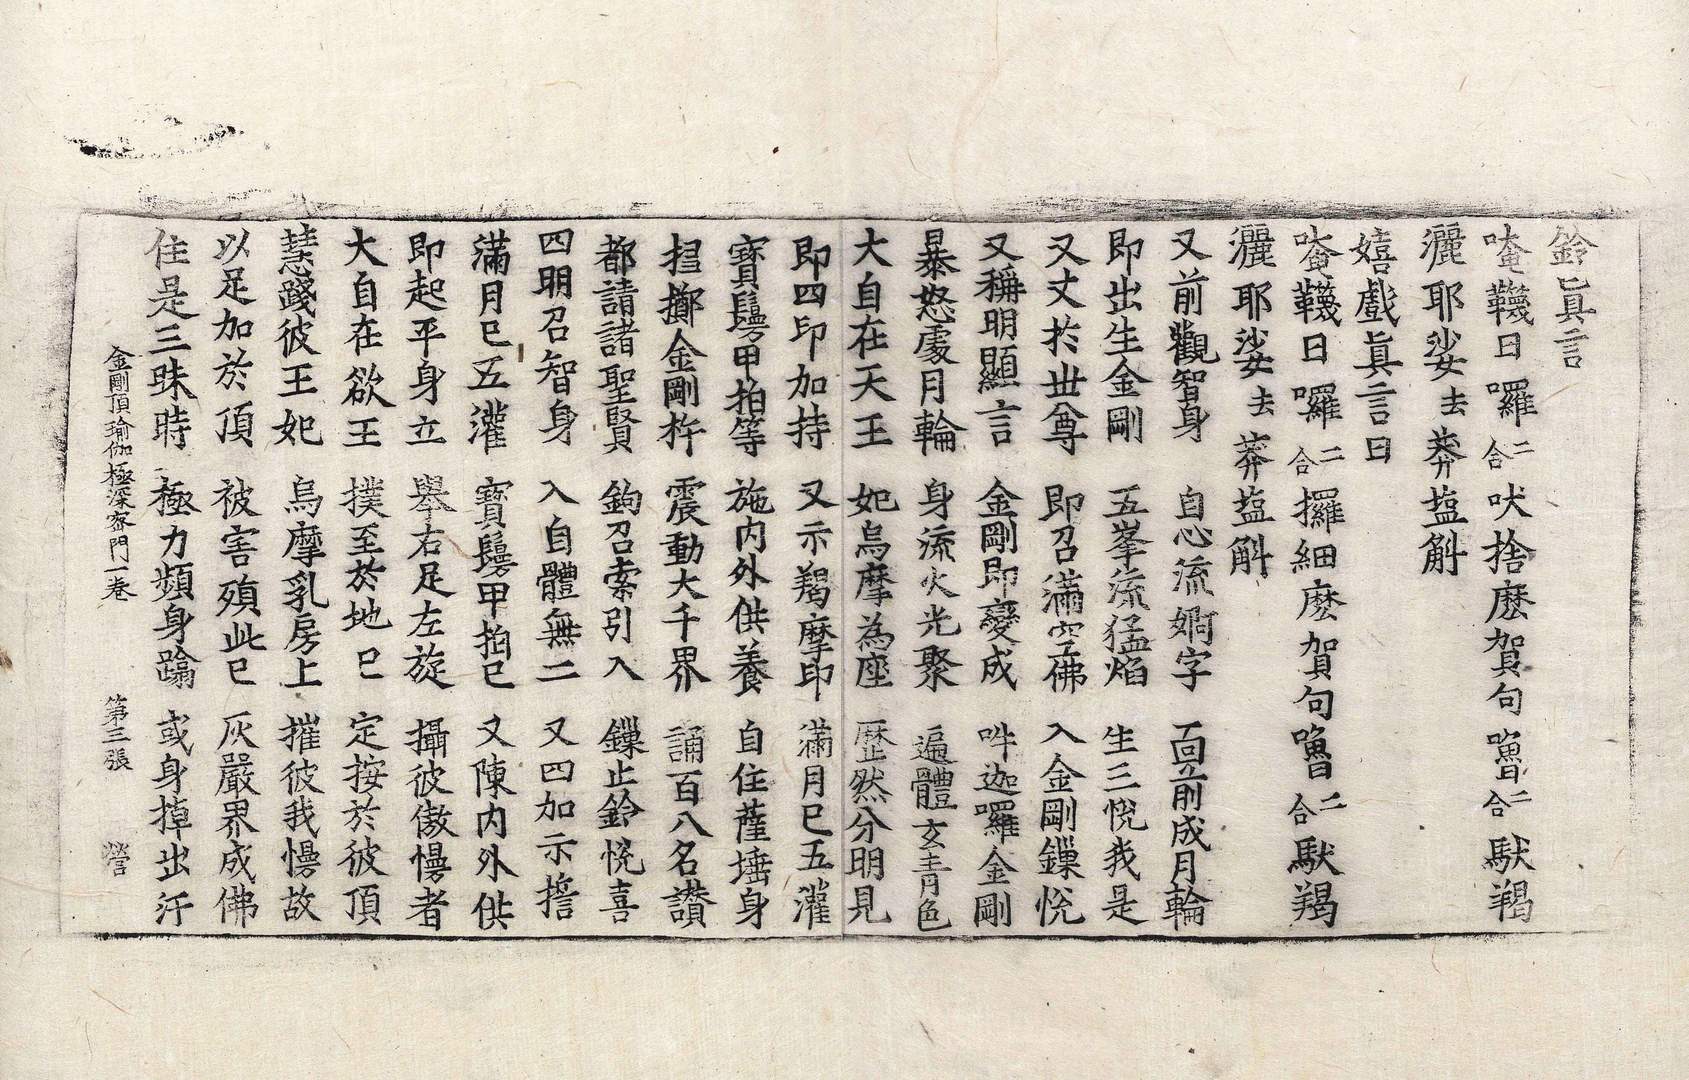 鈴眞言
唵韈日囉二合吠捨麽賀句嚕二合馱羯
灑耶娑去莽塩斛
嬉戲眞言曰
唵韈日囉二合攞細麽賀句嚕二合馱羯
灑耶娑去莽塩斛
又前觀智身　自心流婀字　面前成月輪
即出生金剛　五峯流猛焰　生三悅我是
又丈於丗尊　即召滿空佛　入金剛鏁悅
又稱明顯言　金剛即變成　吽迦囉金剛
暴怒處月輪　身流火光聚　遍體玄青色
大自在天王　妃烏摩為座　歷然分明見
即四印加持　又示羯摩印　滿月已五灌
寳鬘甲拍等　施内外供養　自住薩埵身
擲金剛杵　震動大千界　誦百八名讃
都請諸聖賢　鉤召索引入　鏁止鈴悅喜
四明召智身　入自體無二　又四加示誓
滿月已五灌　寳鬘甲拍已　又陳内外供
即起平身立　舉右足左旋　攝彼傲慢者
大自在欲王　撲至於地已　定按於彼頂
慧踐彼王妃　烏摩乳房上　摧彼我慢故
以足加於頂　被害殞此已　灰嚴界成佛
住是三昧時　極力頻身踰　或身掉出汗
金剛頂瑜伽極深密門一卷　第三張　營